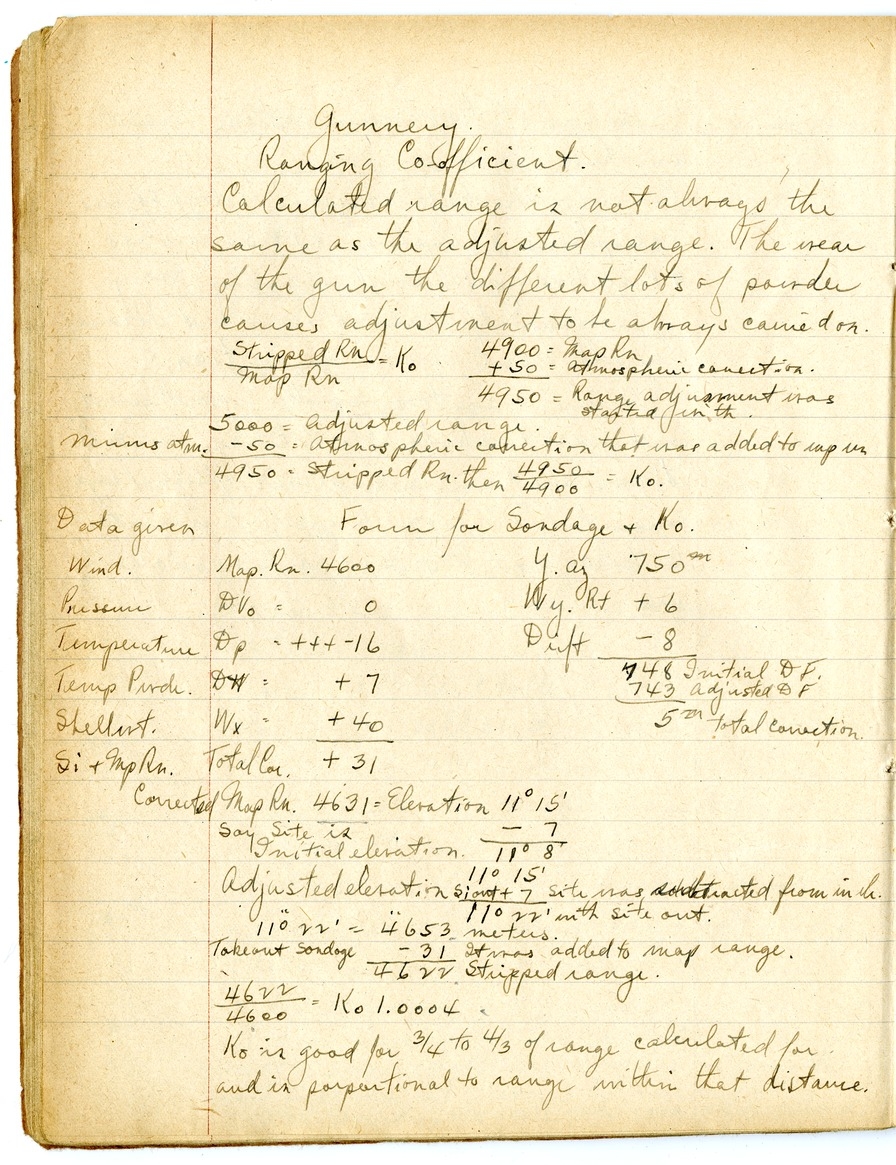 Gunnery.
Ranging Coefficient.
Calculated range is not always the
same as the adjusted range. The wear
of the gun the different lots of powder
causes adjustment to be always carried on.
Stripped Rn / Map Rn = Ko
4900 = Map Rn
+50 = Atmospheric correction.
4950 = Range adjusment was
started with.
5000 = Adjusted range.
Minus atm. -50 = Atmospheric correction that was added to mp rn
4950 = Stripped Rn. then 4950/4900 = Ko.
Data given Form for Sondage + Ko.
Wind. Map. Rn. 4600 Y. az 750m
Pressure DVo = 0 Wy. Rt + 6
Temperature Dp = +++-16 Drift - 8
748 Initial DF.
Temp Powdr. DH = + 7 743 Adjusted DF
Shellwt. Wx = + 40 5m total correction.
Si + Mp Rn. Total Cor. + 31
Corrected Map Rn. 4631 = Elevation 11° 15'
Say Site is - 7
Initial elevation. 11° 8'
11° 15'
Adjusted elevation Si out + 7 Site was subtracted from in
11° 22' with site out.
11° 22' = 4653 meters.
Takeout Sondage - 31 It was added to map range.
4622 Stripped range.
4622/4600 = Ko 1.0004
Ko is good for 3/4 to 4/3 of range calculated for
and is porportional to range within that distance.